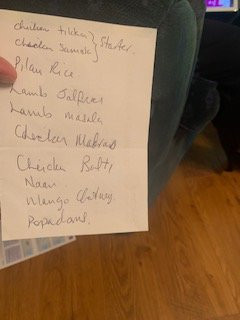 chicken tikka } Starter.
chicken Samosa
Pilau Rice
Lamb Jalfrezi
Lamb masala
Chicken Madras
Chicken Balti
Naan
Mango Chutney
Popadoms.